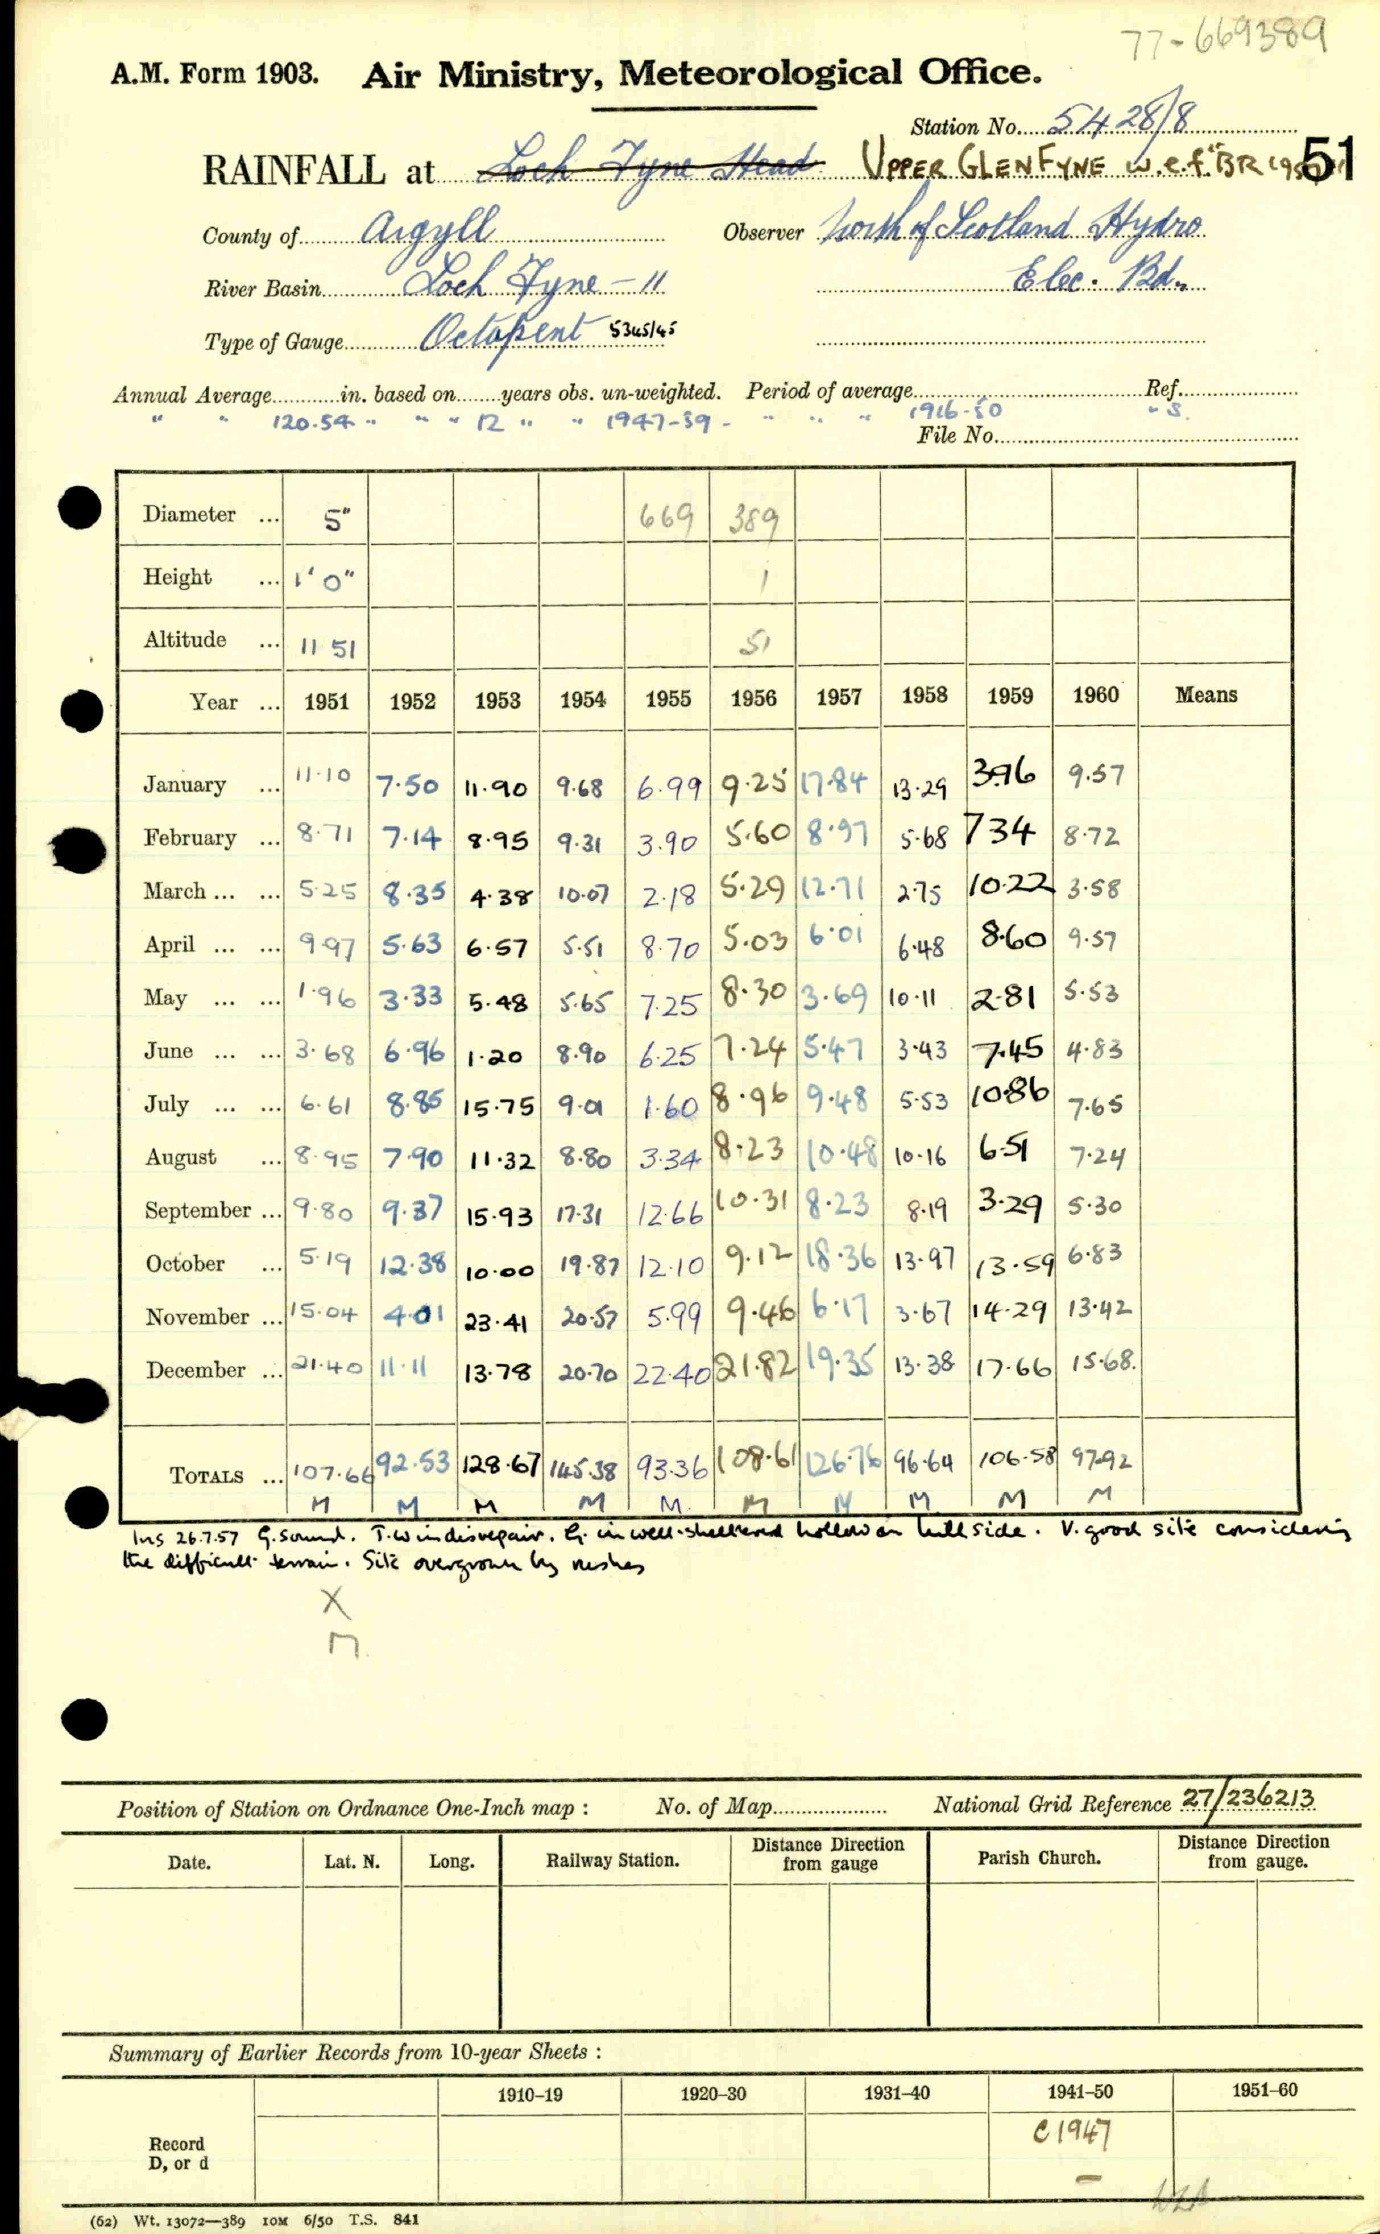 77-669389
A.M. Form 1903. Air Ministry, Meteorological Office.
Station No. 5428/8
RAINFALL at Loch Fyne Head UPPER GLEN FYNE w.e.f. "BR 195 51
County of Argyll Observer North of Scotland Hydro
River Basin Loch Fyne - 11 Elec. Bd.
Type of Gauge Octapent 5345/45
Annual Average in. based on years obs. un-weighted. Period of average Ref.
" " 120.54 " " " 12 " " 1947-59 - " " " 1916-50 " S.
File No.
Diameter ... 5" 669 389
Height ... 1' 0" 1
Altitude ... 1151 51
Year ... 1951 1952 1953 1954 1955 1956 1957 1958 1959 1960 Means
January ... 11.10 7.50 11.90 9.68 6.99 9.25 17.84 13.29 3.96 9.57
February ... 8.71 7.14 8.95 9.31 3.90 5.60 8.97 5.68 7 34 8.72
March ... ... 5.25 8.35 4.38 10.07 2.18 5.29 12.71 2.75 10.22 3.58
April ... ... 9.97 5.63 6.57 5.51 8.70 5.03 6.01 6.48 8.60 9.57
May ... ... 1.96 3.33 5.48 5.65 7.25 8.30 3.69 10.11 2.81 5.53
June ... ... 3.68 6.96 1.20 8.90 6.25 7.24 5.47 3.43 7.45 4.83
July ... ... 6.61 8.85 15.75 9.01 1.60 8.96 9.48 5.53 10.86 7.65
August ... 8.95 7.90 11.32 8.80 3.34 8.23 10.48 10.16 6.51 7.24
September ... 9.80 9.37 15.93 17.31 12.66 10.31 8.23 8.19 3.29 5.30
October ... 5.19 12.38 10.00 19.87 12.10 9.12 18.36 13.97 13.59 6.83
November ... 15.04 4.01 23.41 20.57 5.99 9.46 6.17 3.67 14.29 13.42
December ... 21.40 11.11 13.78 20.70 22.40 21.82 19.35 13.38 17.66 15.68.
TOTALS ... 107.66 92.53 128.67 145.38 93.36 108.61 126.76 96.64 106.58 97.92
M M M M M. M M M M M
Ins 26.7.57 G. sound. T.W in disrepair. G. in well-sheltered hollow on hill side. V. good site considering
the difficult terrain. Site overgrown by rushes
X
M
Position of Station on Ordnance One-Inch map : No. of Map National Grid Reference 27/236213
Date. Lat. N. Long. Railway Station. Distance Direction from gauge Parish Church. Distance Direction from gauge.
Summary of Earlier Records from 10-year Sheets :
1910–19 1920–30 1931–40 1941–50 1951–60
Record
D, or d
C1947
–
(62) Wt. 13072—389 10M 6/50 T.S. 841